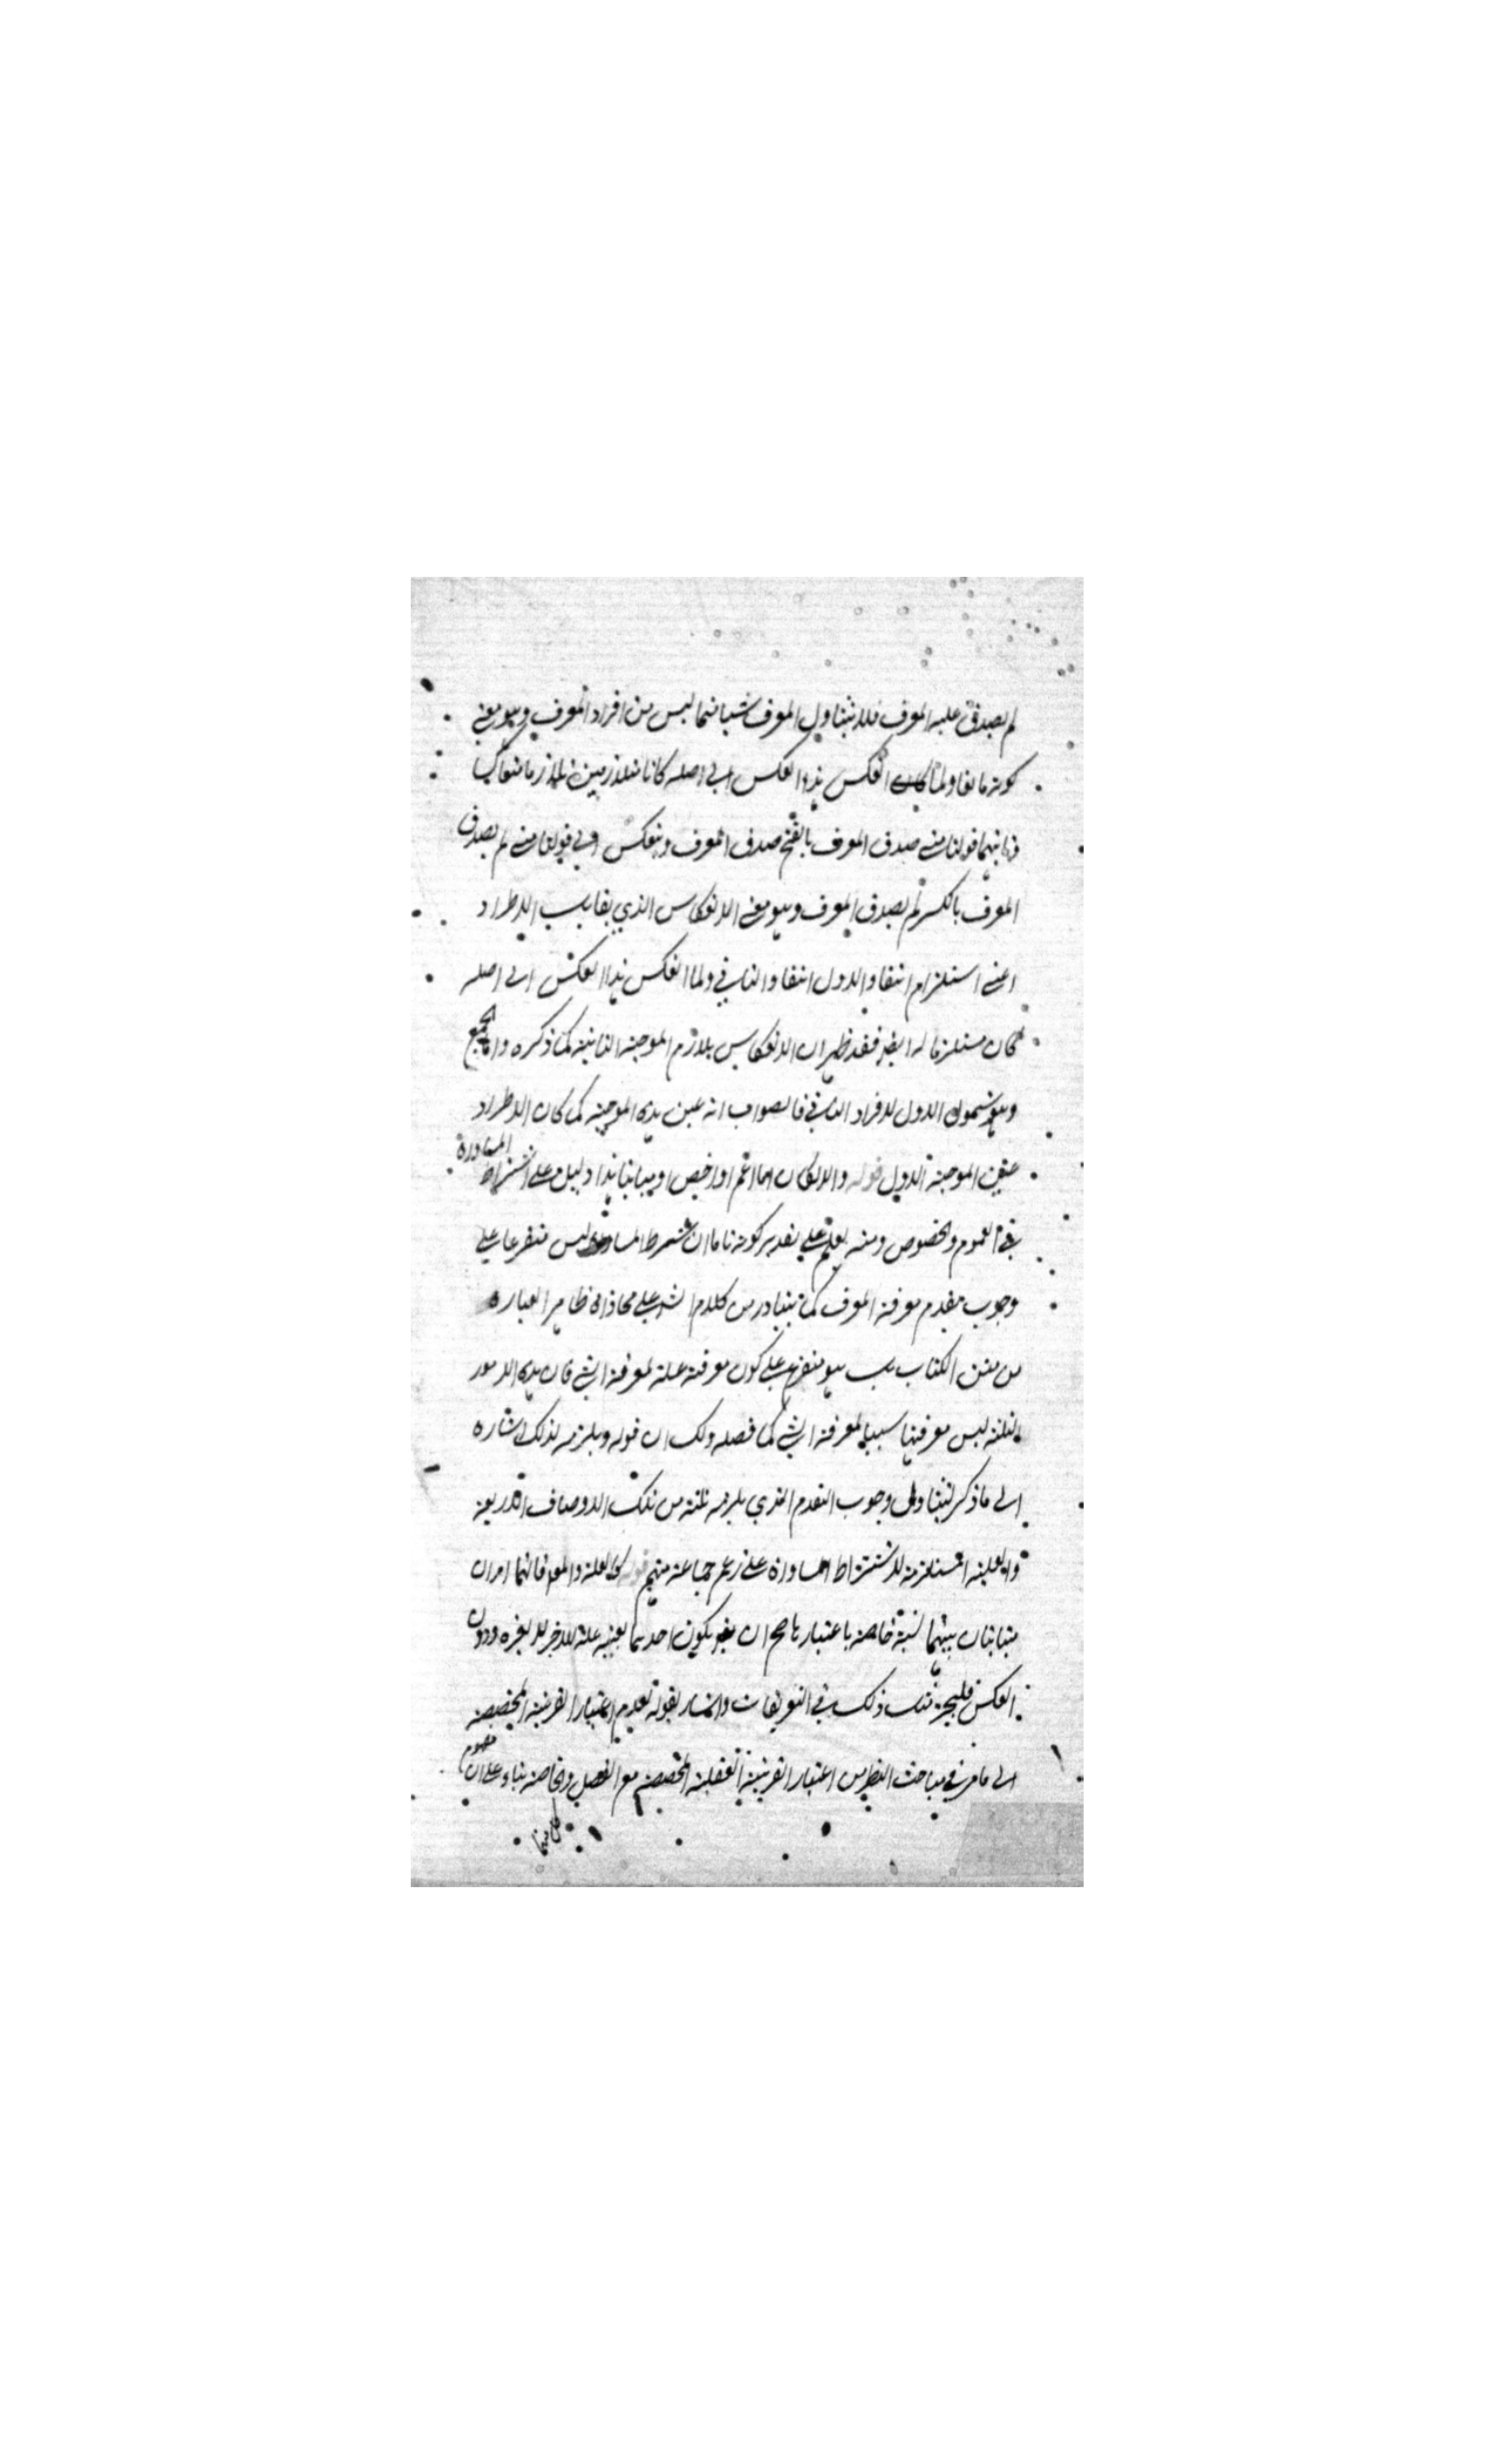 لم يصدق عليه المعرف فلا يتناول المعرف شيئا مما ليس من افراد المعرف وهو معنى
كونه مانعا ولما انعكس هذا العكس الى اصله كانا متلازمين تلازما متعاكسا
وثانيهما قولنا متى صدق المعرف بالفتح صدق المعرف وينعكس الى قولنا متى لم يصدق
المعرف بالكسر لم يصدق المعرف وهو معنى الانعكاس الذي يقابل الاطراد
اعني استلزام انتفاء الاول انتفاء الثاني ولما انعكس هذا العكس الى اصله
كان مستلزما له ايضا فقد ظهر ان الانعكاس يلازم الموجبة الثانية كما ذكره واما الجمع
وهو شمول الاول لافراد الثاني فالصواب انه عين هذه الموجبة كما كان الاطراد
عين الموجبة الاولى قوله والا لكان اما اعم او اخص او مباينا هذا دليل على اشتراط المساواة
في العموم والخصوص ومنه يعلم على تقدير كونه تاما ان شرط المساواة ليس متفرعا على
وجوب تقدم معرفة المعرف كما يتبادر من كلام الش على محاذاة ظاهر العبارة
من متن الكتاب بل هو متفرع على كون معرفته علة لمعرفة الشي فان هذه الامور
الثلثة ليس معرفتها سببا لمعرفة الشي كما فصله ولك ان قوله ويلزمه لذلك اشارة
الى ما ذكر ليتناول وجوب التقدم الذي يلزمه ثلثة من تلك الاوصاف الاربعة
والعلية المستلزمة لاشتراط المساواة على زعم جماعة منهم قوله كالعلة والمعلول فانهما امران
متباينان بينهما نسبة خاصة باعتبارها صح ان يكون احدهما بعينه علة للاخر لا لغيره ودون
العكس فليجز مثل ذلك في التعريفات واشار بقوله لعدم اعتبار القرينة المخصصة
الى ما مر في مباحث النظر من اعتبار القرينة العقلية المخصصة مع الفصل والخاصة بناء على ان مفهوم
كل منهما